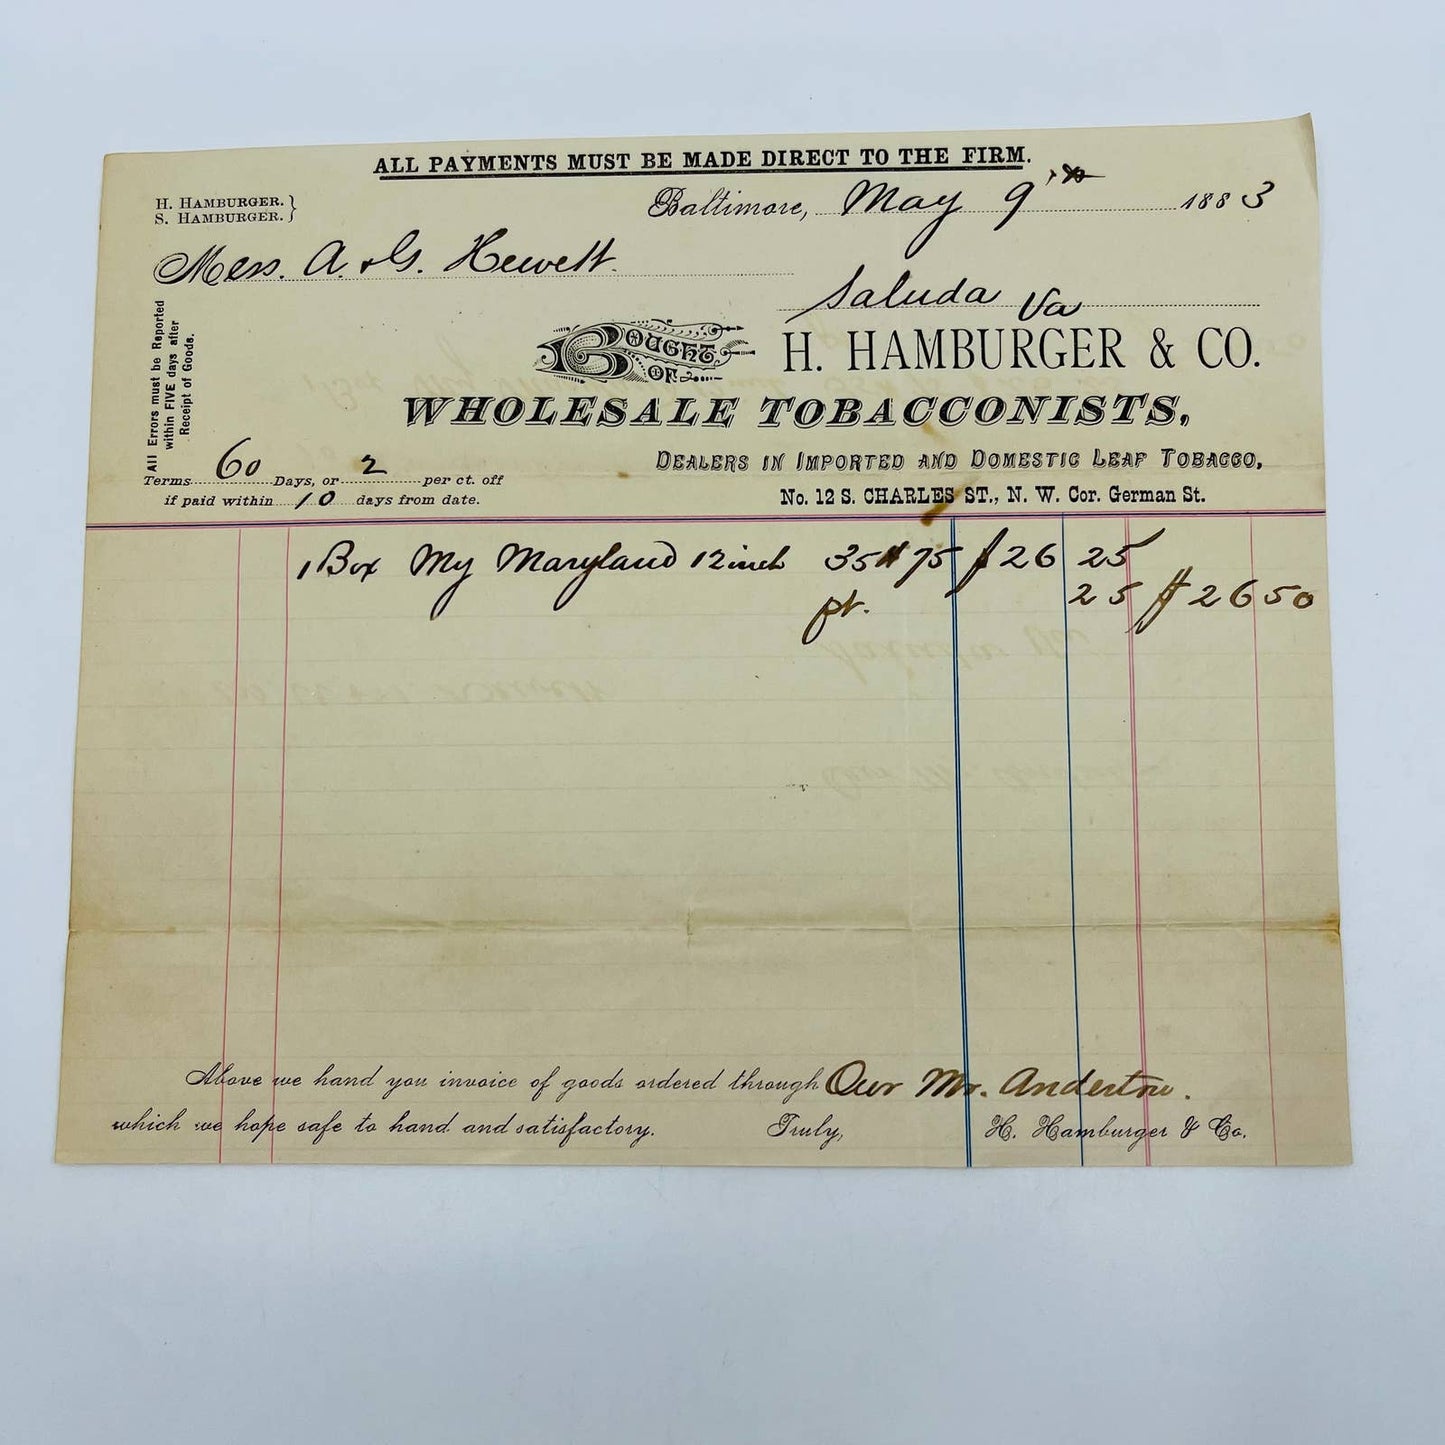 ALL PAYMENTS MUST BE MADE DIRECT TO THE FIRM.
H. HAMBURGER.
S. HAMBURGER.
Baltimore, May 9th 1883
Mess. A. & G. Hewett.
Saluda Va
All Errors must be Reported
within FIVE days after
Receipt of Goods.
BOUGHT OF H. HAMBURGER & CO.
WHOLESALE TOBACCONISTS,
DEALERS IN IMPORTED AND DOMESTIC LEAF TOBACCO,
Terms 60 Days, or 2 per ct. off
if paid within 10 days from date.
No. 12 S. CHARLES ST., N. W. Cor. German St.
1 Box My Maryland 12 inch 35# 75 $ 26 25
pt. 25 $ 26 50
Above we hand you invoice of goods ordered through Our Mr. Anderton.
which we hope safe to hand and satisfactory. Truly, H. Hamburger & Co.